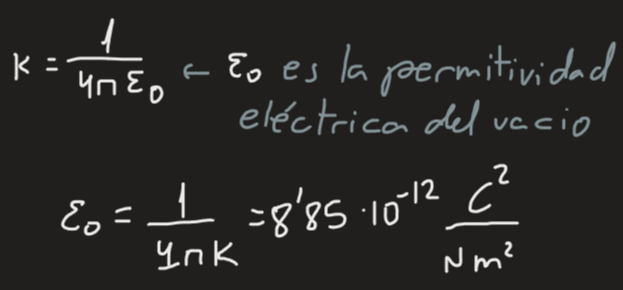 K = 1/(4π ε₀) ← ε₀ es la permitividad
eléctrica del vacio
ε₀ = 1/(4πK) = 8'85 · 10⁻¹² C²/(N m²)